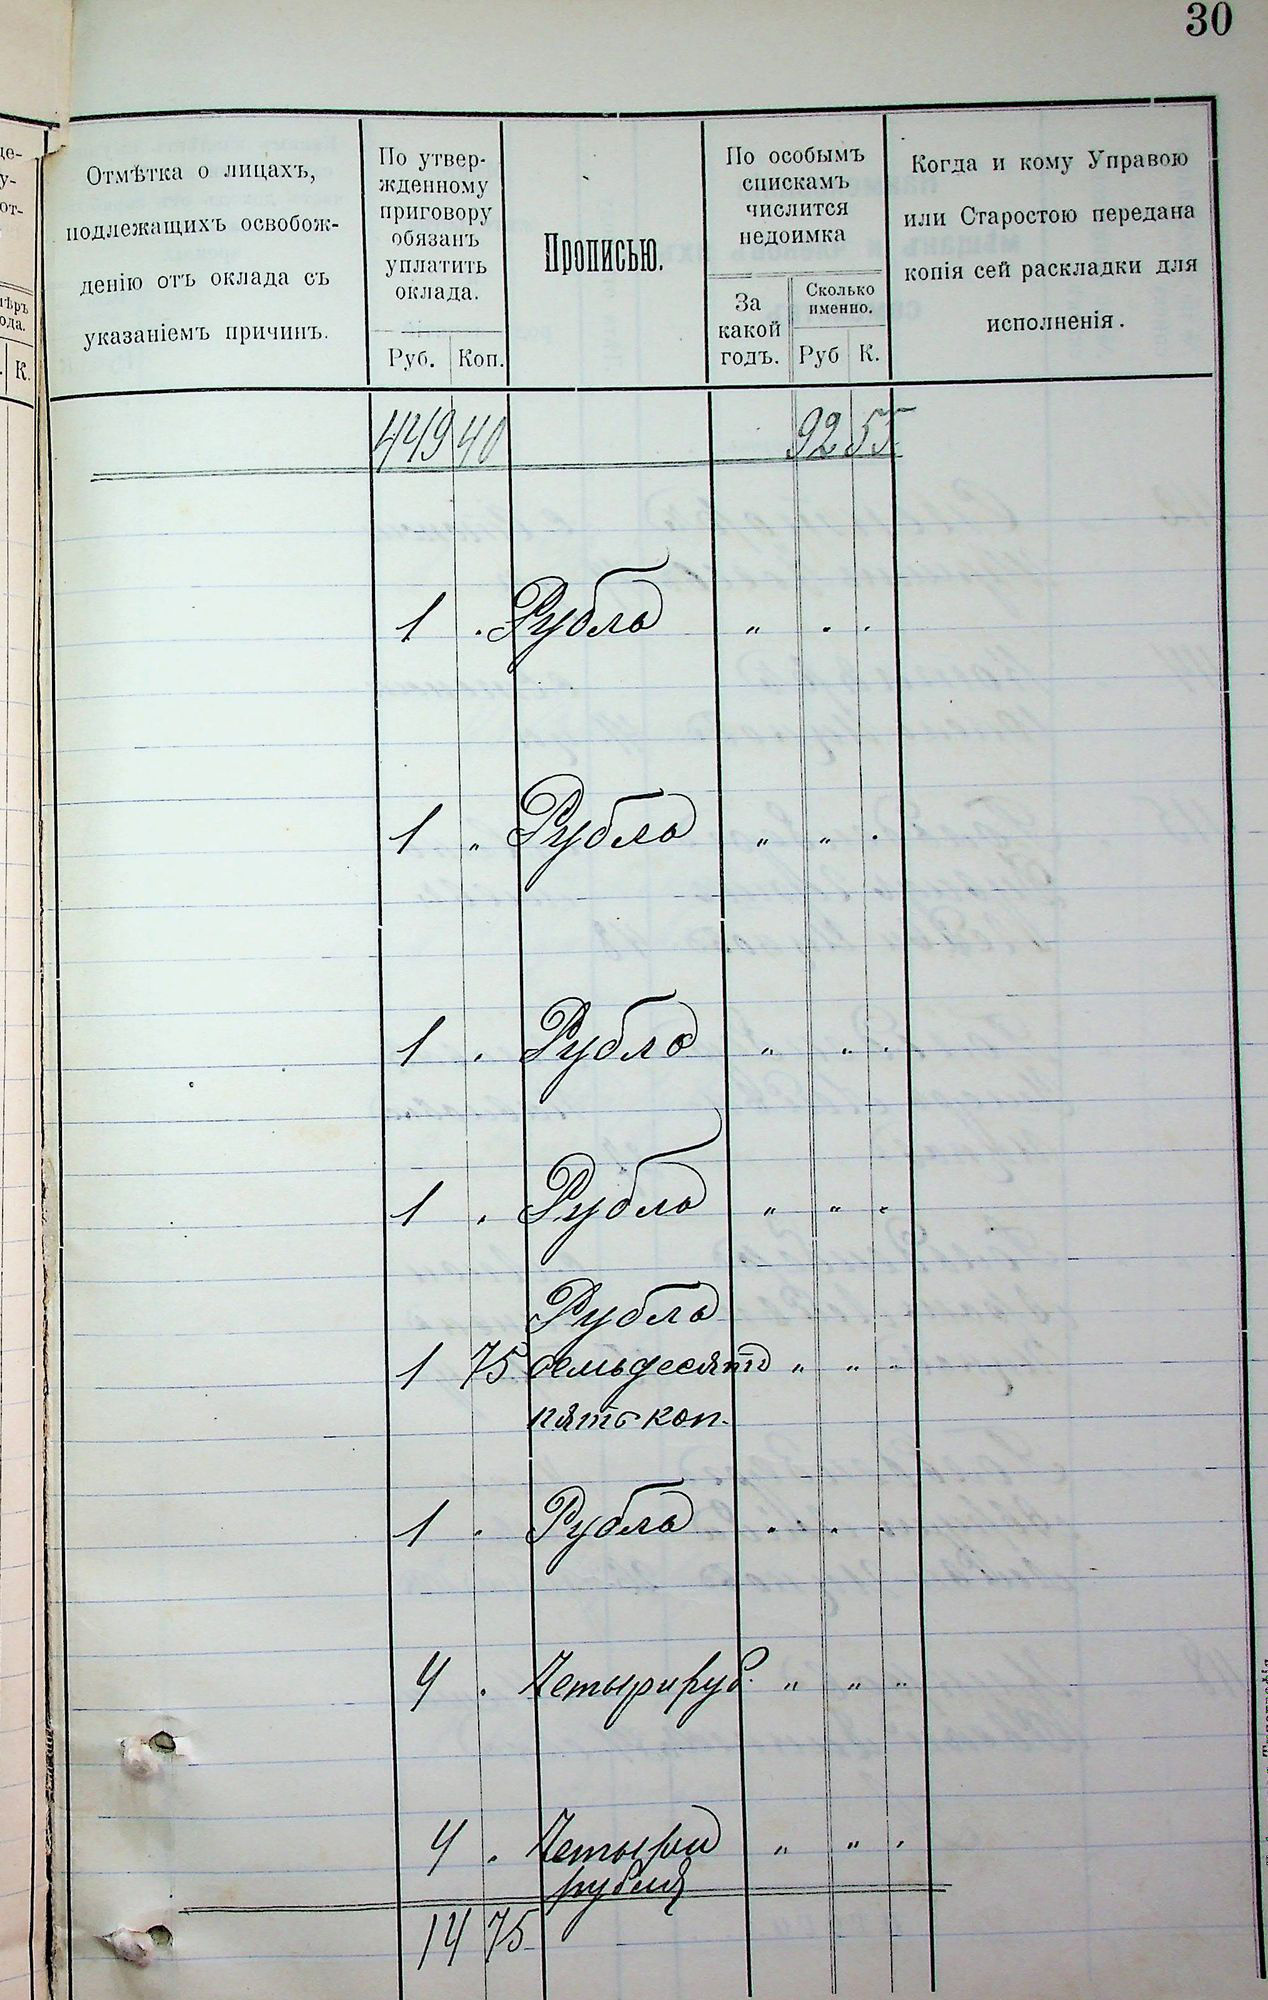 30
Отмѣтка о лицахъ,
подлежащихъ освобож-
денію отъ оклада съ
указаніемъ причинъ.
По утвер-
жденному
приговору
обязанъ
уплатить
оклада.
Руб. Коп.
Прописью.
По особымъ
спискамъ
числится
недоимка
За
какой
годъ.
Сколько
именно.
Руб К.
Когда и кому Управою
или Старостою передана
копія сей раскладки для
исполненія.
449 40 92 55
1 . Рубль " . .
1 " Рубль " " .
1 . Рубль " .. .
1 . Рубль " " .
Рубль
1 75 семьдесятъ " " "
пять коп.
1 . Рубль . . .
4 . Четыри руб. " " "
4 . Четыри " " .
рубля
14 75